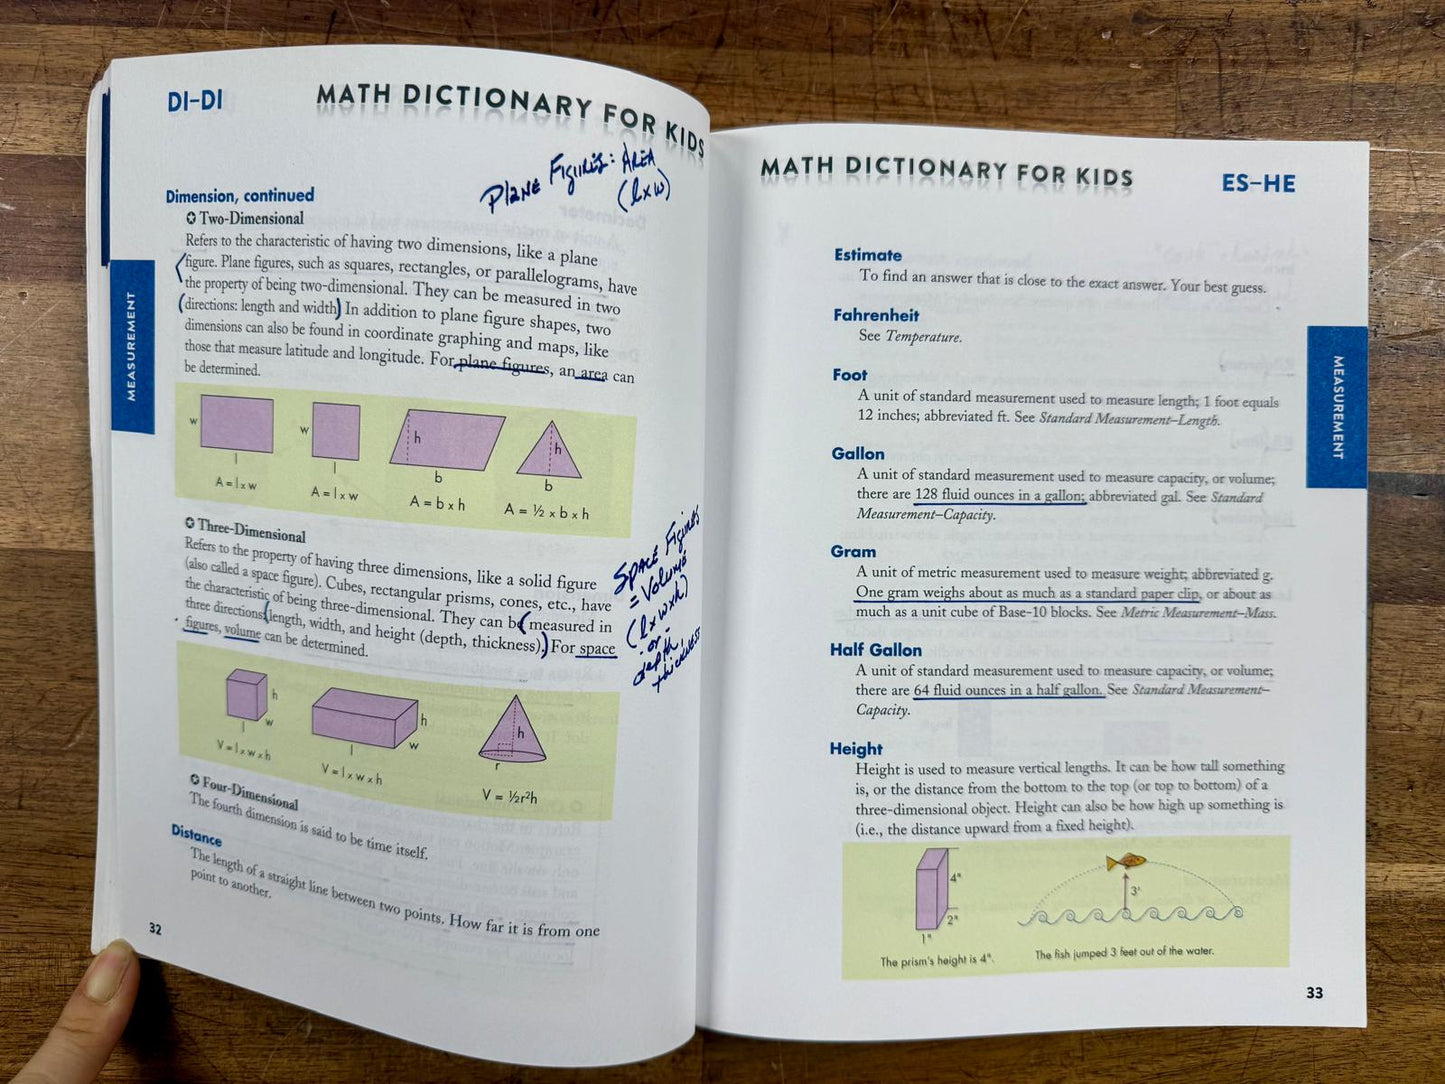 DI–DI
MATH DICTIONARY FOR KIDS
PLANE FIGURES: AREA
(l x w)
Dimension, continued
✪ Two-Dimensional
Refers to the characteristic of having two dimensions, like a plane
figure. Plane figures, such as squares, rectangles, or parallelograms, have
the property of being two-dimensional. They can be measured in two
(directions: length and width) In addition to plane figure shapes, two
dimensions can also be found in coordinate graphing and maps, like
those that measure latitude and longitude. For plane figures, an area can
be determined.
MEASUREMENT
w
l
A = l x w
w
l
A = l x w
h
b
A = b x h
h
b
A = ½ x b x h
✪ Three-Dimensional
Refers to the property of having three dimensions, like a solid figure
(also called a space figure). Cubes, rectangular prisms, cones, etc., have
the characteristic of being three-dimensional. They can be (measured in
three directions: length, width, and height (depth, thickness).) For space
figures, volume can be determined.
SPACE Figures
= Volume
(l x w x h)
or
depth,
thickness
h
w
l
V = l x w x h
h
w
l
V = l x w x h
h
r
V = ½r²h
✪ Four-Dimensional
The fourth dimension is said to be time itself.
Distance
The length of a straight line between two points. How far it is from one
point to another.
32
MATH DICTIONARY FOR KIDS
ES–HE
Estimate
To find an answer that is close to the exact answer. Your best guess.
Fahrenheit
See Temperature.
Foot
A unit of standard measurement used to measure length; 1 foot equals
12 inches; abbreviated ft. See Standard Measurement–Length.
Gallon
A unit of standard measurement used to measure capacity, or volume;
there are 128 fluid ounces in a gallon; abbreviated gal. See Standard
Measurement–Capacity.
Gram
A unit of metric measurement used to measure weight; abbreviated g.
One gram weighs about as much as a standard paper clip, or about as
much as a unit cube of Base-10 blocks. See Metric Measurement–Mass.
Half Gallon
A unit of standard measurement used to measure capacity, or volume;
there are 64 fluid ounces in a half gallon. See Standard Measurement–
Capacity.
Height
Height is used to measure vertical lengths. It can be how tall something
is, or the distance from the bottom to the top (or top to bottom) of a
three-dimensional object. Height can also be how high up something is
(i.e., the distance upward from a fixed height).
MEASUREMENT
4"
2"
1"
The prism's height is 4".
3'
The fish jumped 3 feet out of the water.
33